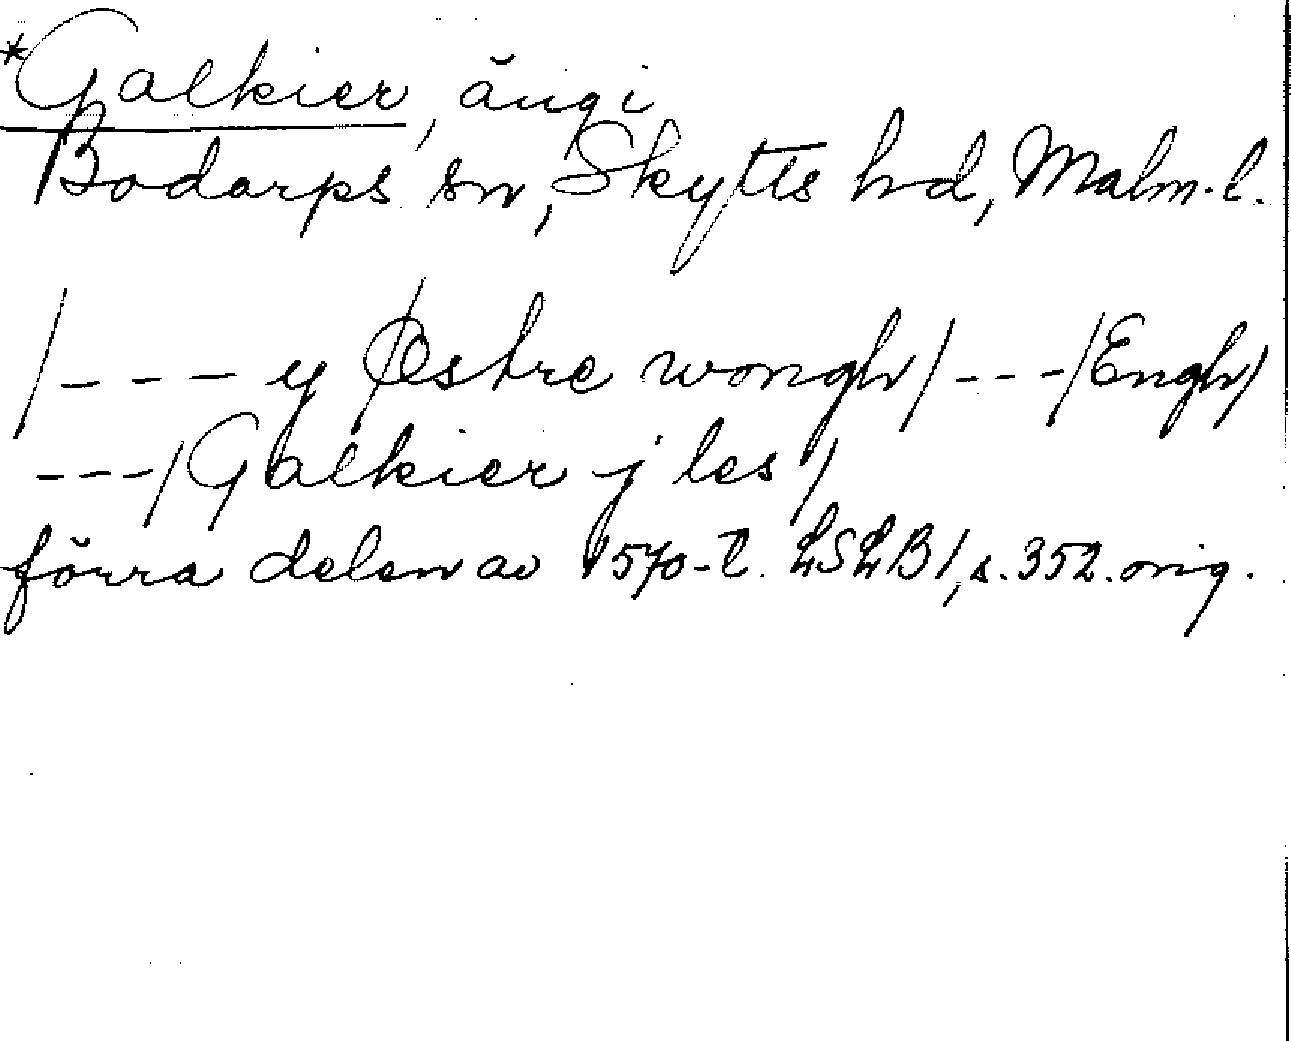 *Galkier, äng i
Bodarps sn, Skytts hd, Malm.l.
/--- y Østre wongh/---/Engh/
---/Galkier j les/
förra delen av 1570-t. LSLB1, s. 352. orig.